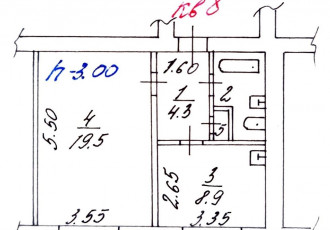 кв 8
h-3.00
1.60
1
4.3
2
5
5.50
4
19.5
2.65
3
8.9
3.55
3.35